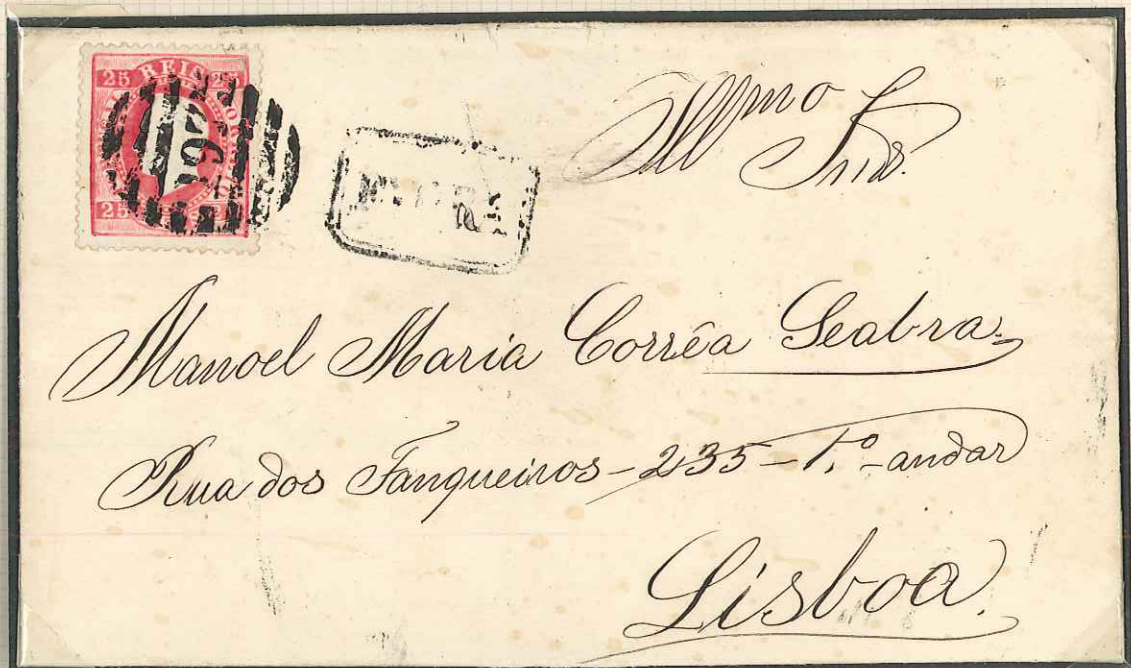 25 REIS 25
25
Illmo
Snr.
Manoel Maria Corrêa Seabra
Rua dos Fanqueiros - 235 - 1.º - andar
Lisboa.